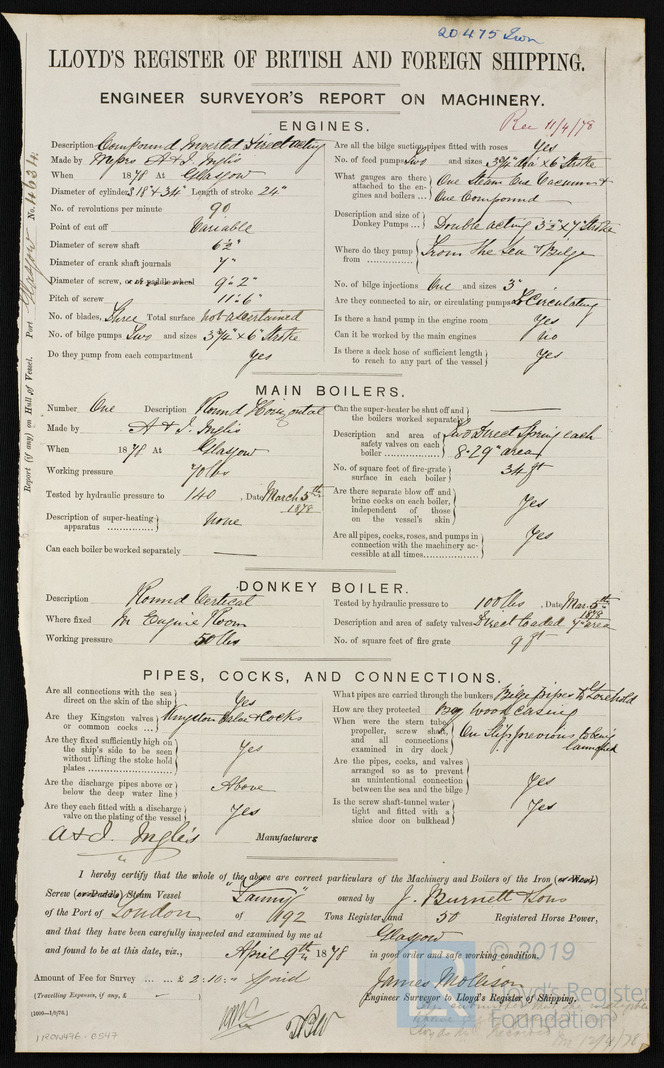 20475 Iron
LLOYD'S REGISTER OF BRITISH AND FOREIGN SHIPPING.
ENGINEER SURVEYOR'S REPORT ON MACHINERY.
Rec 11/4/78
Report (if any) on Hull of Vessel. Port Glasgow No. 4634.
ENGINES.
Description Compound Inverted Direct acting
Made by Messrs A & J. Inglis
When 1878 At Glasgow
Diameter of cylinders 18" & 34" Length of stroke 24"
No. of revolutions per minute 90
Point of cut off Variable
Diameter of screw shaft 6½"
Diameter of crank shaft journals 7"
Diameter of screw, or of paddle wheel 9' 2"
Pitch of screw 11' 6"
No. of blades, Three Total surface not ascertained
No. of bilge pumps Two and sizes 3¾" x 6" Stroke
Do they pump from each compartment Yes
Are all the bilge suction pipes fitted with roses Yes
No. of feed pumps Two and sizes 3¾" dia x 6" Stroke
What gauges are there attached to the engines and boilers ... One Steam One Vacuum & One Compound
Description and size of Donkey Pumps ... Double acting 3½" x 7" Stroke
Where do they pump from From the Sea & Bilge
No. of bilge injections One and sizes 3"
Are they connected to air, or circulating pumps To Circulating
Is there a hand pump in the engine room Yes
Can it be worked by the main engines no
Is there a deck hose of sufficient length to reach to any part of the vessel Yes
MAIN BOILERS.
Number One Description Round Horizontal
Made by A & J. Inglis
When 1878 At Glasgow
Working pressure 70 lbs
Tested by hydraulic pressure to 140 , Date March 5th 1878
Description of super-heating apparatus none
Can each boiler be worked separately ——
Can the super-heater be shut off and the boilers worked separately ——
Description and area of safety valves on each boiler Two Direct Spring each 8.29" area
No. of square feet of fire-grate surface in each boiler 34 ft
Are there separate blow off and brine cocks on each boiler, independent of those on the vessel's skin Yes
Are all pipes, cocks, roses, and pumps in connection with the machinery accessible at all times Yes
DONKEY BOILER.
Description Round Vertical
Where fixed In Engine Room
Working pressure 50 lbs
Tested by hydraulic pressure to 100 lbs , Date Mar. 5th 1878
Description and area of safety valves Direct loaded 7" area
No. of square feet of fire grate 9 ft
PIPES, COCKS, AND CONNECTIONS.
Are all connections with the sea direct on the skin of the ship Yes
Are they Kingston valves or common cocks ... Kingston Valve & Cocks
Are they fixed sufficiently high on the ship's side to be seen without lifting the stoke hold plates Yes
Are the discharge pipes above or below the deep water line Above
Are they each fitted with a discharge valve on the plating of the vessel Yes
What pipes are carried through the bunkers, Bilge pipes to Forehold
How are they protected By wood casing
When were the stern tube, propeller, screw shaft, and all connections examined in dry dock On Slip previous to being launched
Are the pipes, cocks, and valves arranged so as to prevent an unintentional connection between the sea and the bilge Yes
Is the screw shaft-tunnel water tight and fitted with a sluice door on bulkhead Yes
A & J. Inglis Manufacturers
I hereby certify that the whole of the above are correct particulars of the Machinery and Boilers of the Iron (or Wood)
Screw (or Paddle) Steam Vessel "Fanny" owned by J. Burnett & Sons
of the Port of London of 492 Tons Register, and 50 Registered Horse Power,
and that they have been carefully inspected and examined by me at Glasgow
and found to be at this date, viz., April 9th 1878 in good order and safe working condition.
Amount of Fee for Survey ... ... £ 2.10.- paid
James Mollison
(Travelling Expenses, if any, £ –)
Engineer Surveyor to Lloyd's Register of Shipping.
(1000—1/9/76.)
IRON476-0547
© 2019
Lloyd's Register
Foundation